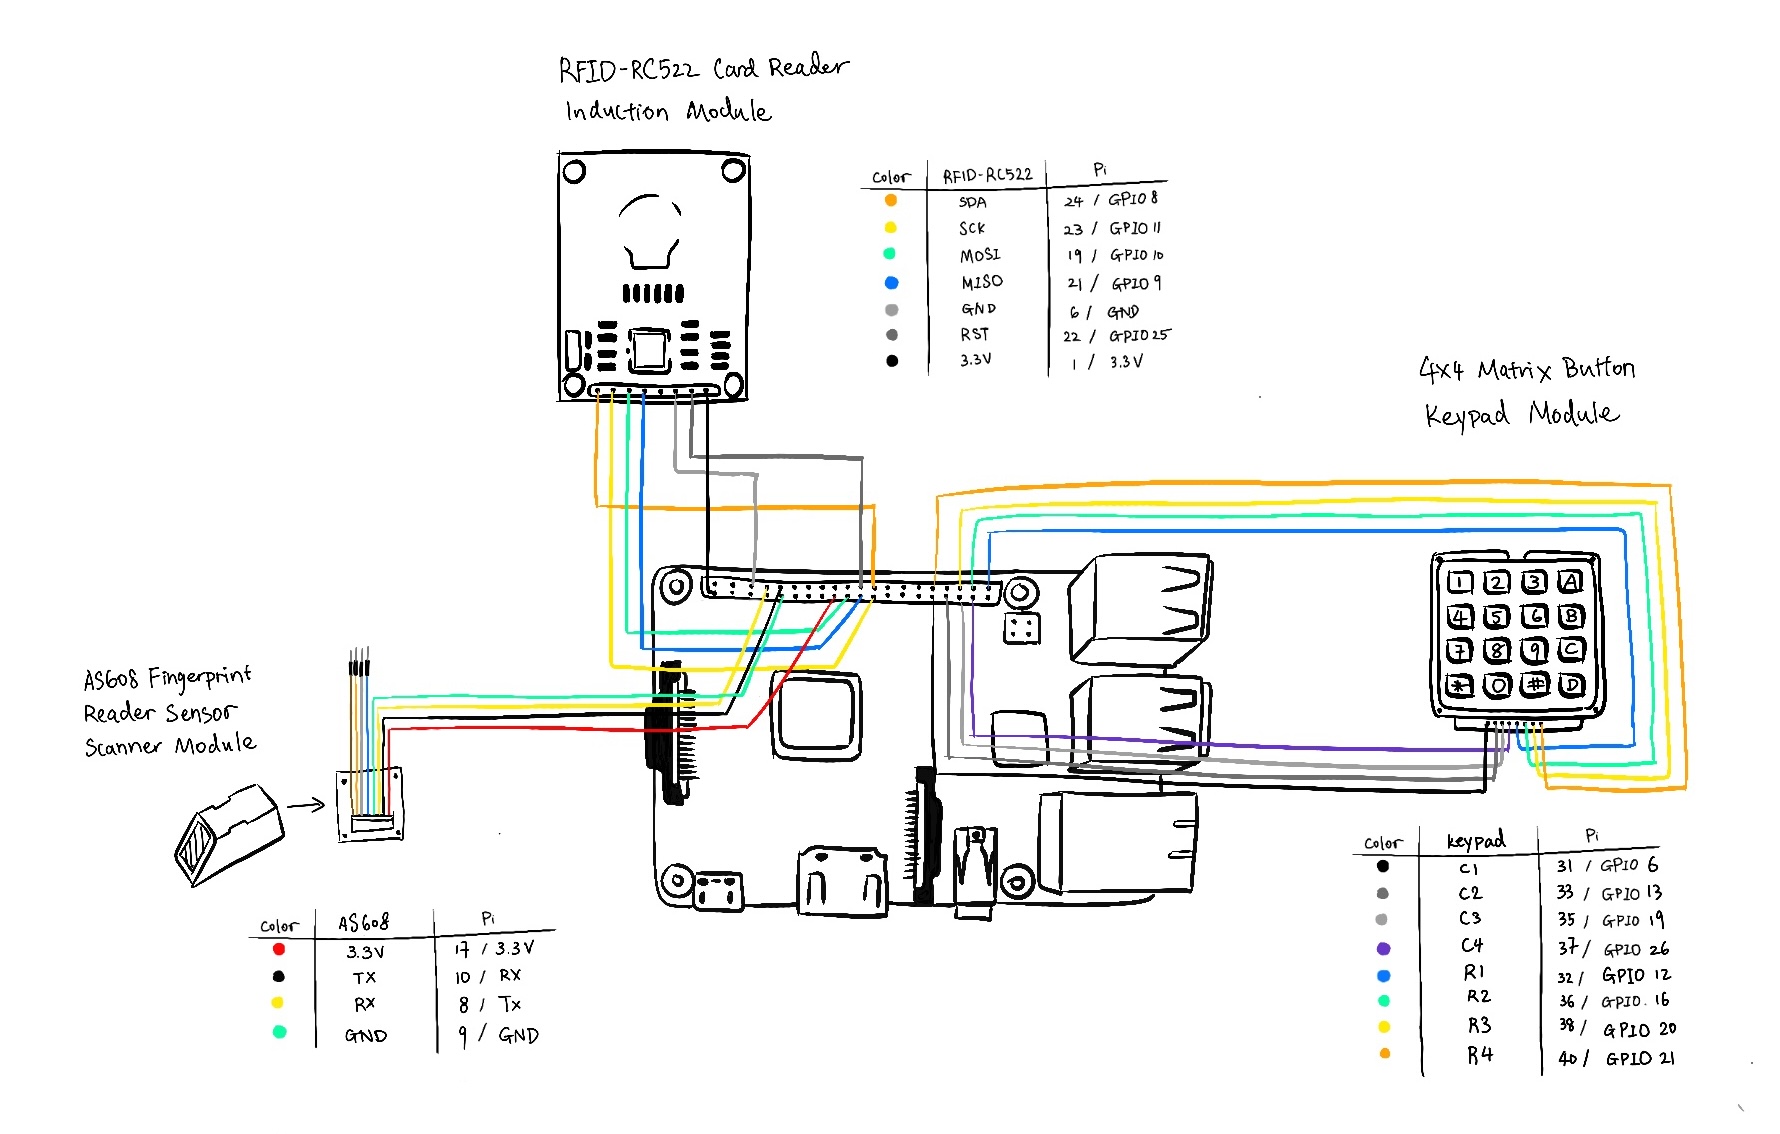 RFID-RC522 Card Reader
Induction Module
Color RFID-RC522 Pi
SDA 24 / GPIO 8
SCK 23 / GPIO 11
MOSI 19 / GPIO 10
MISO 21 / GPIO 9
GND 6 / GND
RST 22 / GPIO 25
3.3V 1 / 3.3V
4x4 Matrix Button
Keypad Module
1 2 3 A
4 5 6 B
7 8 9 C
* 0 # D
AS608 Fingerprint
Reader Sensor
Scanner Module
Color AS608 Pi
3.3V 17 / 3.3V
TX 10 / RX
RX 8 / Tx
GND 9 / GND
Color keypad Pi
C1 31 / GPIO 6
C2 33 / GPIO 13
C3 35 / GPIO 19
C4 37 / GPIO 26
R1 32 / GPIO 12
R2 36 / GPIO. 16
R3 38 / GPIO 20
R4 40 / GPIO 21